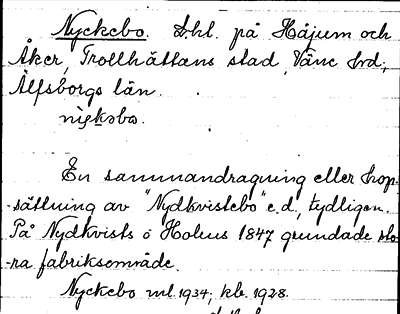 Nyckebo. D.hl. på Håjum och
Åker, Trollhättans stad, Väne hrd;
Älfsborgs län.
En sammandragning eller hop-
-sättning av "Nydkvistebo" e.d., tydligen.
På Nydkvists o Holms 1847 grundade sto-
-ra fabriksområde.
Nyckebo ml. 1934, kb. 1928.